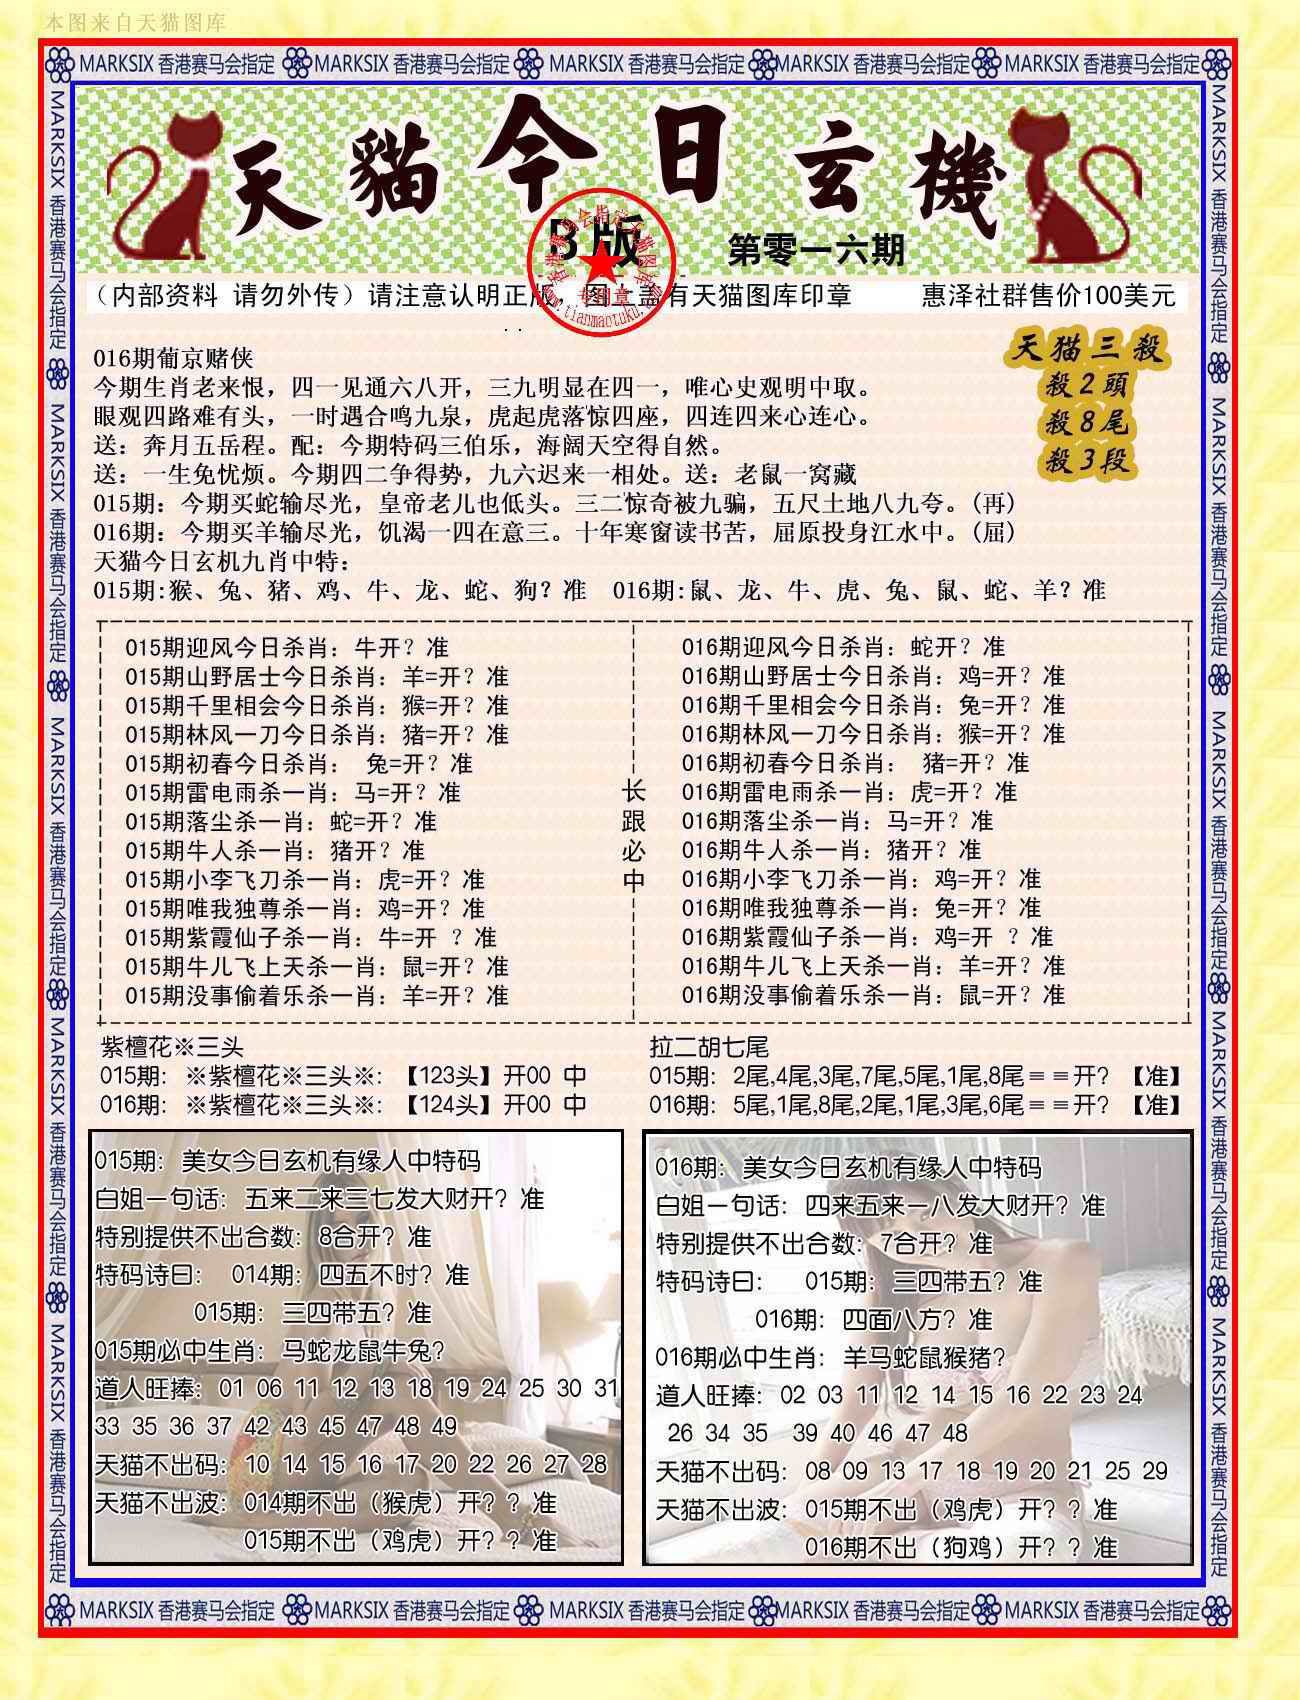 本图来自天猫图库
MARKSIX 香港赛马会指定 MARKSIX 香港赛马会指定 MARKSIX 香港赛马会指定 MARKSIX 香港赛马会指定 MARKSIX 香港赛马会指定
MARKSIX 香港赛马会指定 MARKSIX 香港赛马会指定 MARKSIX 香港赛马会指定 MARKSIX 香港赛马会指定 MARKSIX 香港赛马会指定
MARKSIX 香港赛马会指定 MARKSIX 香港赛马会指定 MARKSIX 香港赛马会指定 MARKSIX 香港赛马会指定 MARKSIX 香港赛马会指定
天貓今日玄機
B版
第零一六期
香港赛马会指定天猫图库
专用章
www.tianmaotuku.com
（内部资料 请勿外传）请注意认明正版，图上盖有天猫图库印章 惠泽社群售价100美元
天猫三殺
殺2頭
殺8尾
殺3段
016期葡京赌侠
今期生肖老来恨，四一见通六八开，三九明显在四一，唯心史观明中取。
眼观四路难有头，一时遇合鸣九泉，虎起虎落惊四座，四连四来心连心。
送：奔月五岳程。配：今期特码三伯乐，海阔天空得自然。
送：一生免忧烦。今期四二争得势，九六迟来一相处。送：老鼠一窝藏
015期：今期买蛇输尽光，皇帝老儿也低头。三二惊奇被九骗，五尺土地八九夸。(再)
016期：今期买羊输尽光，饥渴一四在意三。十年寒窗读书苦，屈原投身江水中。(屈)
天猫今日玄机九肖中特：
015期:猴、兔、猪、鸡、牛、龙、蛇、狗？准 016期:鼠、龙、牛、虎、兔、鼠、蛇、羊？准
015期迎风今日杀肖：牛开？准
015期山野居士今日杀肖：羊=开？准
015期千里相会今日杀肖：猴=开？准
015期林风一刀今日杀肖：猪=开？准
015期初春今日杀肖： 兔=开？准
015期雷电雨杀一肖：马=开？准
015期落尘杀一肖：蛇=开？准
015期牛人杀一肖：猪开？准
015期小李飞刀杀一肖：虎=开？准
015期唯我独尊杀一肖：鸡=开？准
015期紫霞仙子杀一肖：牛=开 ？准
015期牛儿飞上天杀一肖：鼠=开？准
015期没事偷着乐杀一肖：羊=开？准
长跟必中
016期迎风今日杀肖：蛇开？准
016期山野居士今日杀肖：鸡=开？准
016期千里相会今日杀肖：兔=开？准
016期林风一刀今日杀肖：猴=开？准
016期初春今日杀肖： 猪=开？准
016期雷电雨杀一肖：虎=开？准
016期落尘杀一肖：马=开？准
016期牛人杀一肖：猪开？准
016期小李飞刀杀一肖：鸡=开？准
016期唯我独尊杀一肖：兔=开？准
016期紫霞仙子杀一肖：鸡=开 ？准
016期牛儿飞上天杀一肖：羊=开？准
016期没事偷着乐杀一肖：鼠=开？准
紫檀花※三头
015期：※紫檀花※三头※:【123头】开00 中
016期：※紫檀花※三头※:【124头】开00 中
拉二胡七尾
015期：2尾,4尾,3尾,7尾,5尾,1尾,8尾==开？【准】
016期：5尾,1尾,8尾,2尾,1尾,3尾,6尾==开？【准】
015期：美女今日玄机有缘人中特码
白姐一句话：五来二来三七发大财开？准
特别提供不出合数：8合开？准
特码诗曰： 014期：四五不时？准
015期：三四带五？准
015期必中生肖：马蛇龙鼠牛兔?
道人旺捧：01 06 11 12 13 18 19 24 25 30 31
33 35 36 37 42 43 45 47 48 49
天猫不出码：10 14 15 16 17 20 22 26 27 28
天猫不出波：014期不出（猴虎）开？？准
015期不出（鸡虎）开？？准
016期：美女今日玄机有缘人中特码
白姐一句话：四来五来一八发大财开？准
特别提供不出合数：7合开？准
特码诗曰： 015期：三四带五？准
016期：四面八方？准
016期必中生肖：羊马蛇鼠猴猪?
道人旺捧：02 03 11 12 14 15 16 22 23 24
26 34 35 39 40 46 47 48
天猫不出码：08 09 13 17 18 19 20 21 25 29
天猫不出波：015期不出（鸡虎）开？？准
016期不出（狗鸡）开？？准
MARKSIX 香港赛马会指定 MARKSIX 香港赛马会指定 MARKSIX 香港赛马会指定 MARKSIX 香港赛马会指定 MARKSIX 香港赛马会指定